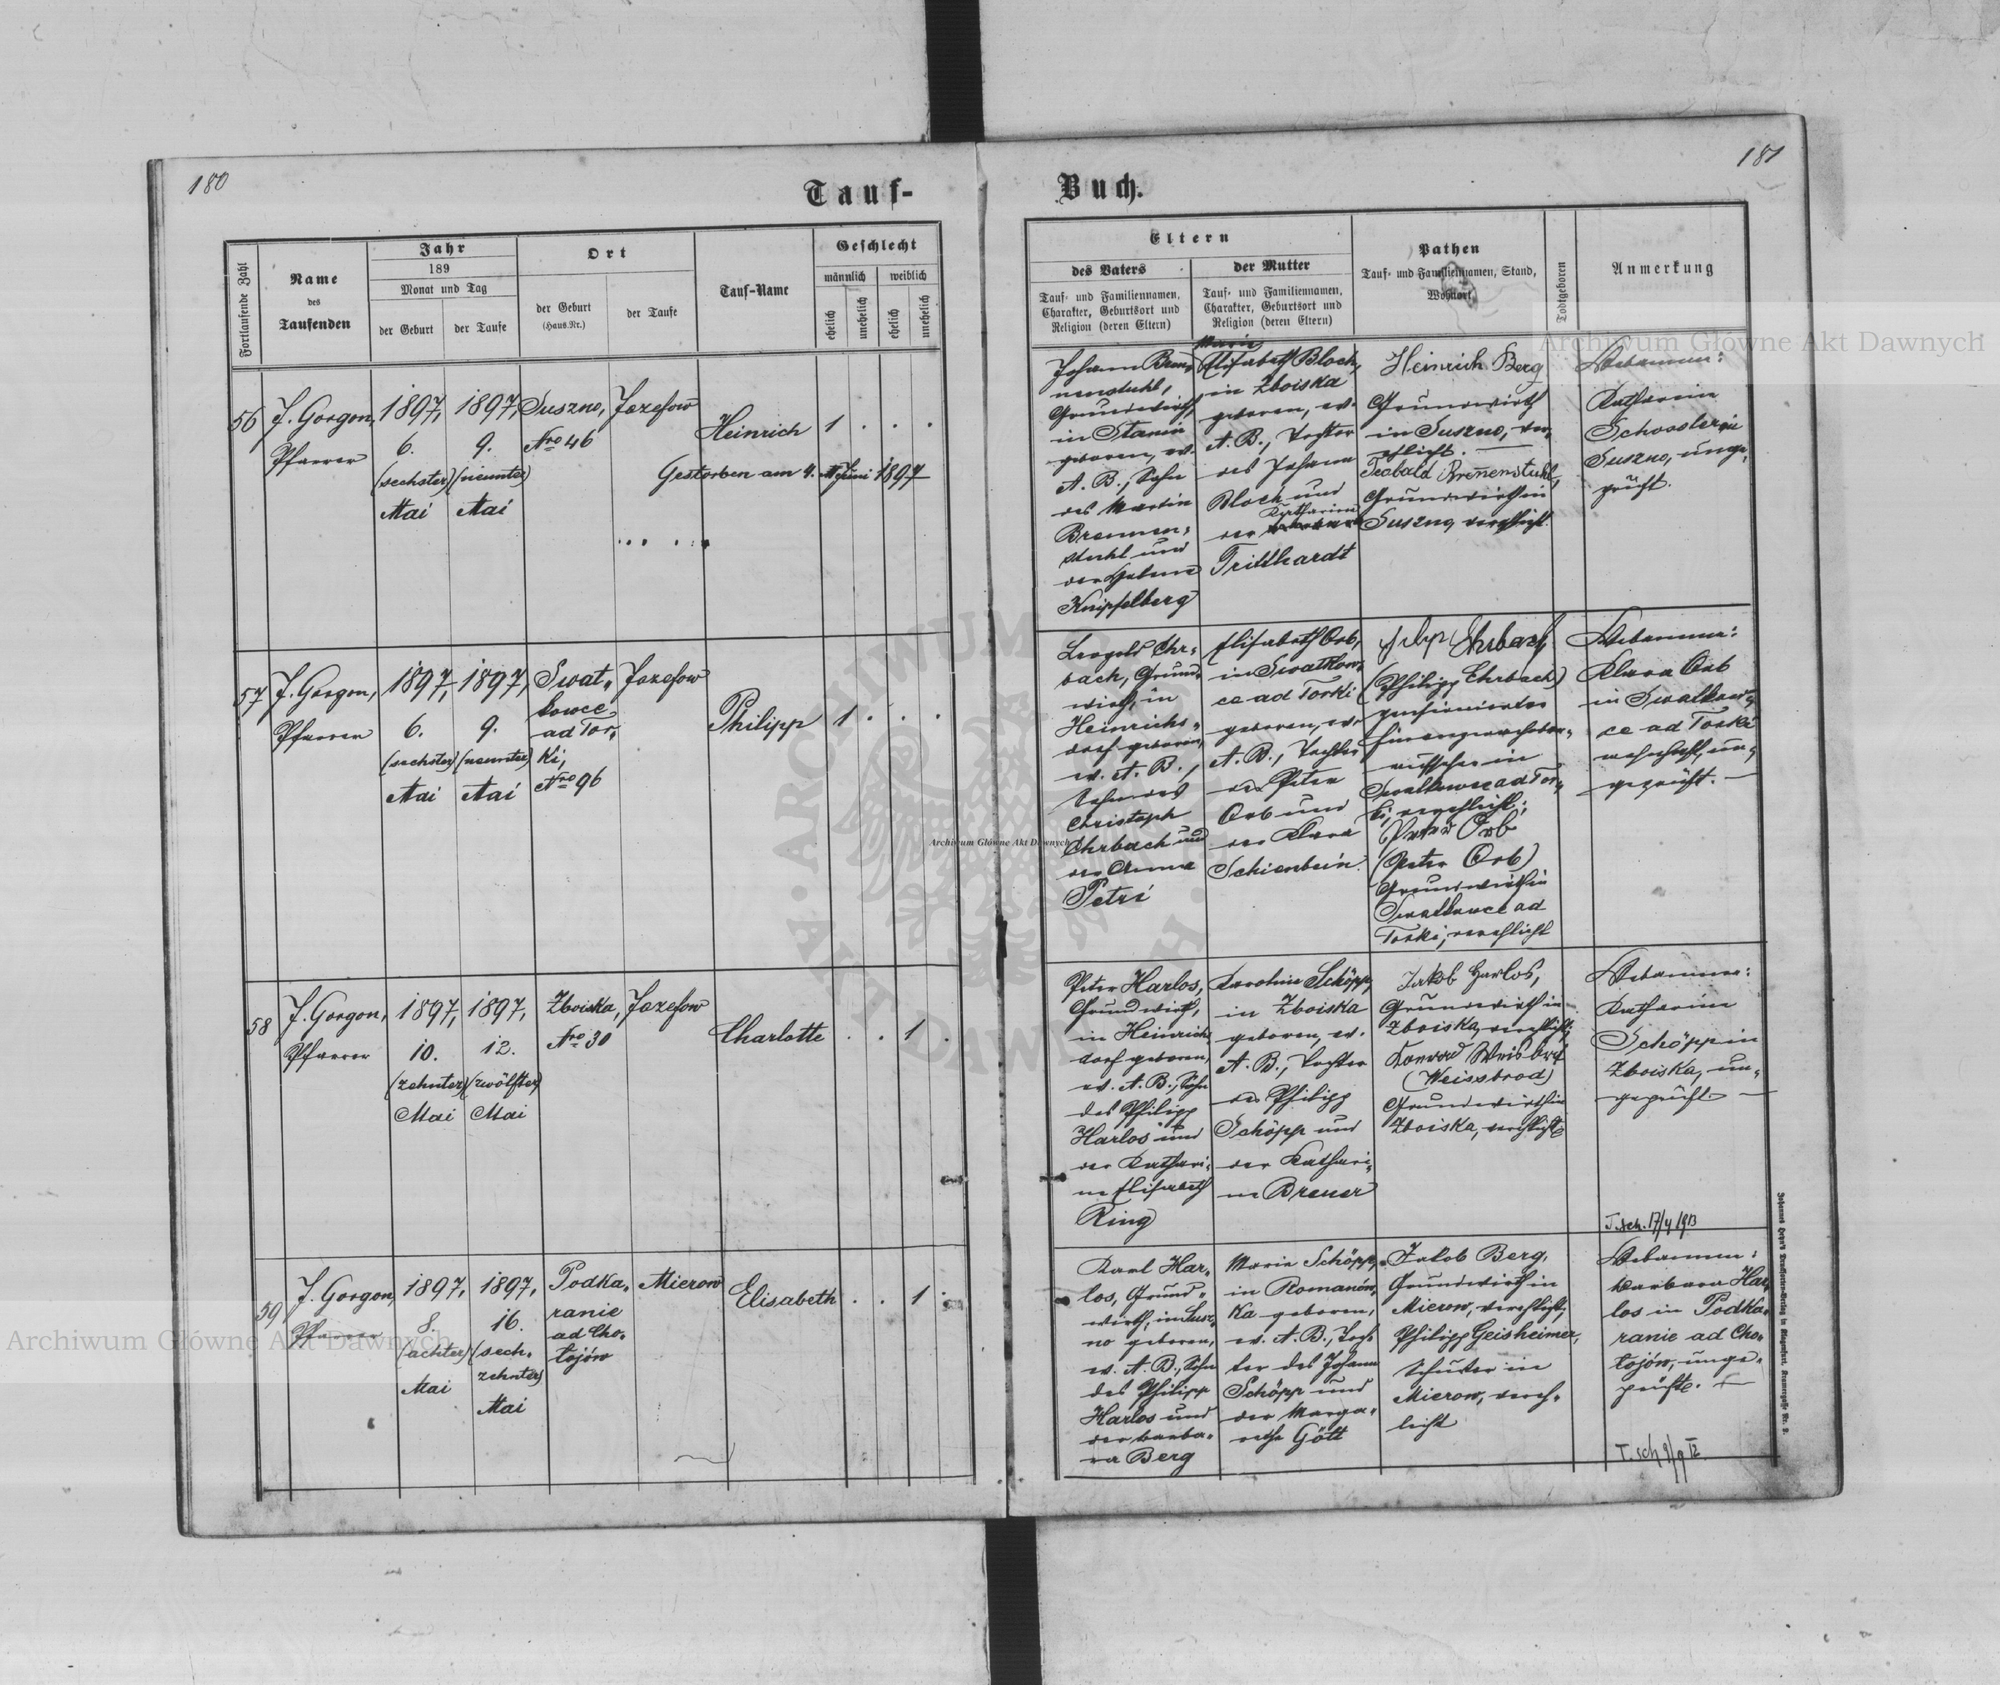 180
181
Tauf-
Buch.
Fortlaufende Zahl
Name
des
Taufenden
Jahr
189
Monat und Tag
der Geburt
der Taufe
Ort
der Geburt
(Haus-Nr.)
der Taufe
Tauf-Name
Geschlecht
männlich
weiblich
ehelich
unehelich
ehelich
unehelich
Eltern
des Vaters
Tauf- und Familiennamen,
Charakter, Geburtsort und
Religion (deren Eltern)
der Mutter
Tauf- und Familiennamen,
Charakter, Geburtsort und
Religion (deren Eltern)
Pathen
Tauf- und Familiennamen, Stand,
Wohnort
Todtgeboren
Anmerkung
56
J. Gorgon,
Pfarrer
1897,
6.
(sechster)
Mai
1897,
9.
(neunter)
Mai
Suszno,
Nro 46
Jozefow
Heinrich
1 . . .
Gestorben am 4. Juni 1897
Johann Bren-
nenstuhl,
Grundwirth,
in Stanin
geboren, ev.
A. B., Sohn
des Martin
Brennen-
stuhl und
der Helene
Knipfelberg
Maria
Elisabeth Bloch,
in Zboiska
geboren, ev.
A. B., Tochter
des Johann
Bloch und
Katharina
der
Trillhardt
Heinrich Berg
Grundwirth
in Suszno, ver-
ehlicht.
Teobald Breñenstuhl,
Grundwirth in
Suszno, verehlicht.
Hebamme:
Katharina
Schossler in
Suszno, unge-
prüft.
57
J. Gorgon,
Pfarrer
1897,
6.
(sechster)
Mai
1897,
9.
(neunter)
Mai
Swat-
kowce
ad Tor-
ki,
Nro 96
Jozefow
Philipp
1 . . .
Leopold Ehr-
bach, Grund-
wirth, in
Heinrichs-
dorf geboren,
ev. A. B.,
Sohn des
Christoph
Ehrbach und
der Anna
Petri
Elisabeth Orb,
in Swatkow-
ce ad Torki
geboren, ev.
A. B., Tochter
des Peter
Orb und
der Klara
Schienbein.
Filip Ehrbach,
(Philipp Ehrbach)
pensionierter
Finanzwachober-
aufseher in
Swatkowce ad Tor-
ki, verehlicht;
Peter Orb
(Peter Orb)
Grundwirth in
Swatkowce ad
Torki, verehlicht
Hebamme:
Klara Orb
in Swatkow-
ce ad Torki
wohnhaft, un-
geprüft.
58
J. Gorgon,
Pfarrer
1897,
10.
(zehnter)
Mai
1897,
12.
(zwölfter)
Mai
Zboiska,
Nro 30
Jozefow
Charlotte
. . 1 .
Peter Harlos,
Grundwirth,
in Heinrichs-
dorf geboren,
ev. A. B., Sohn
des Philipp
Harlos und
der Kathari-
na Elisabeth
Ring
Karoline Schöpp,
in Zboiska
geboren, ev.
A. B., Tochter
des Philipp
Schöpp und
der Kathari-
na Breuer
Jakob Harlos,
Grundwirth in
Zboiska, verehlicht;
Konrad Weisbrod
(Weissbrod)
Grundwirth in
Zboiska, verehlicht
Hebamme:
Katharina
Schöpp in
Zboiska, un-
geprüft.
T.sch. 17/4 1913
59
J. Gorgon,
Pfarrer
1897,
8.
(achter)
Mai
1897,
16.
(sech-
zehnter)
Mai
Podka-
ranie
ad Cho-
łojów
Mierow
Elisabeth
. . 1 .
Karl Har-
los, Grund-
wirth, in Susz-
no geboren,
ev. A. B., Sohn
des Philipp
Harlos und
der Barba-
ra Berg
Maria Schöpp,
in Romanów-
ka geboren,
ev. A. B., Toch-
ter des Johann
Schöpp und
der Marga-
retha Gött
Jakob Berg,
Grundwirth in
Mierow, verehlicht;
Philipp Geisheimer,
Schuster in
Mierow, vereh-
licht
Hebamme:
Barbara Har-
los in Podka-
ranie ad Cho-
łojów, unge-
prüft.
Archiwum Główne Akt Dawnych
Archiwum Główne Akt Dawnych
Archiwum Główne Akt Dawnych